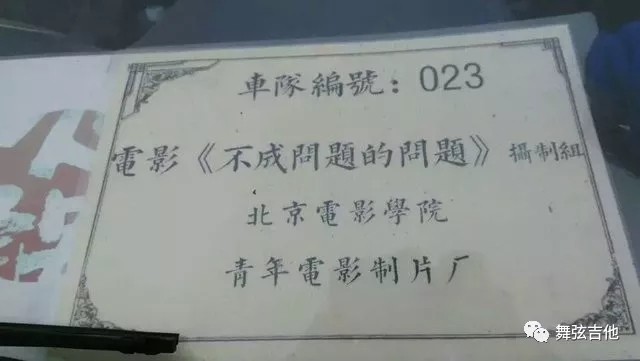 車隊編號：023
電影《不成問題的問題》攝制組
北京電影學院
青年電影制片厂
舞弦吉他